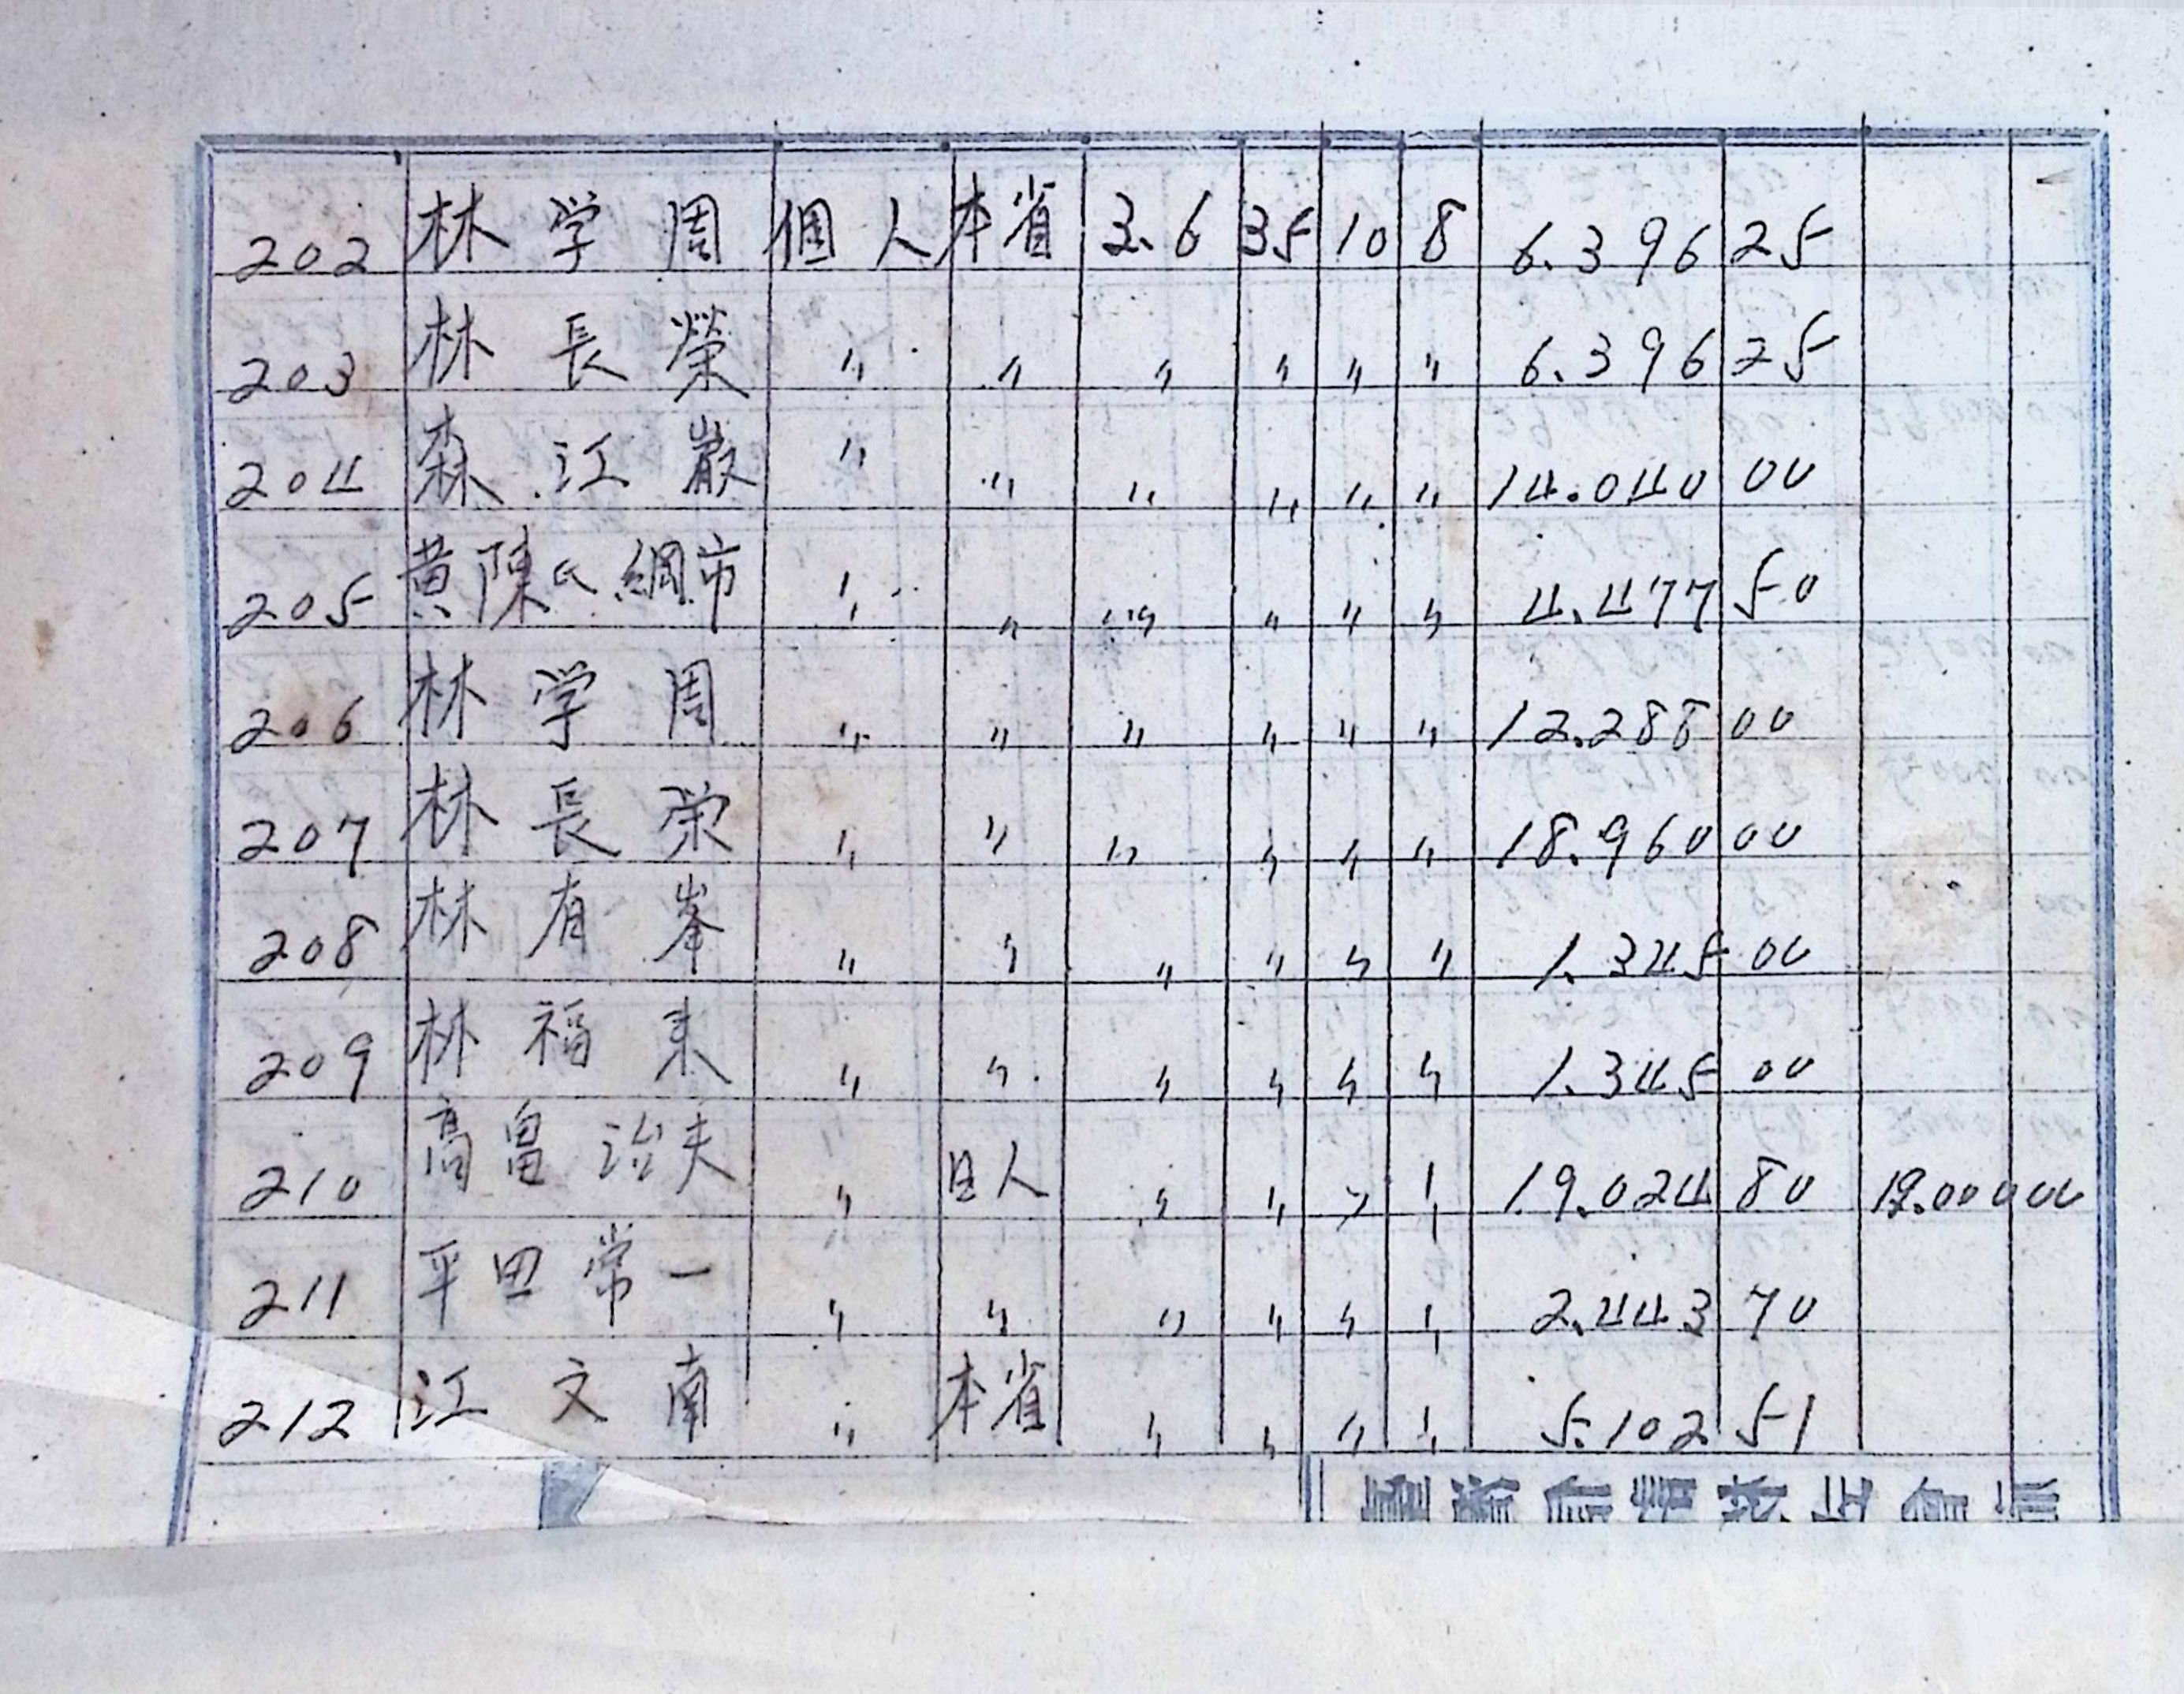 202 林学周 個人 本省 3.6 35 10 8 6.396 25
203 林長榮 〃 〃 〃 〃 〃 〃 6.396 25
204 森江巌 〃 〃 〃 〃 〃 〃 14.040 00
205 黄陳氏綢市 〃 〃 〃 〃 〃 〃 4.477 50
206 林学周 〃 〃 〃 〃 〃 〃 12.288 00
207 林長栄 〃 〃 〃 〃 〃 〃 18.960 00
208 林有峯 〃 〃 〃 〃 〃 〃 1.345 00
209 林福来 〃 〃 〃 〃 〃 〃 1.345 00
210 高畠治夫 〃 日人 〃 〃 〃 〃 19.024 80 19.000 00
211 平田常一 〃 〃 〃 〃 〃 〃 2.443 70
212 江文南 〃 本省 〃 〃 〃 〃 5.102 51